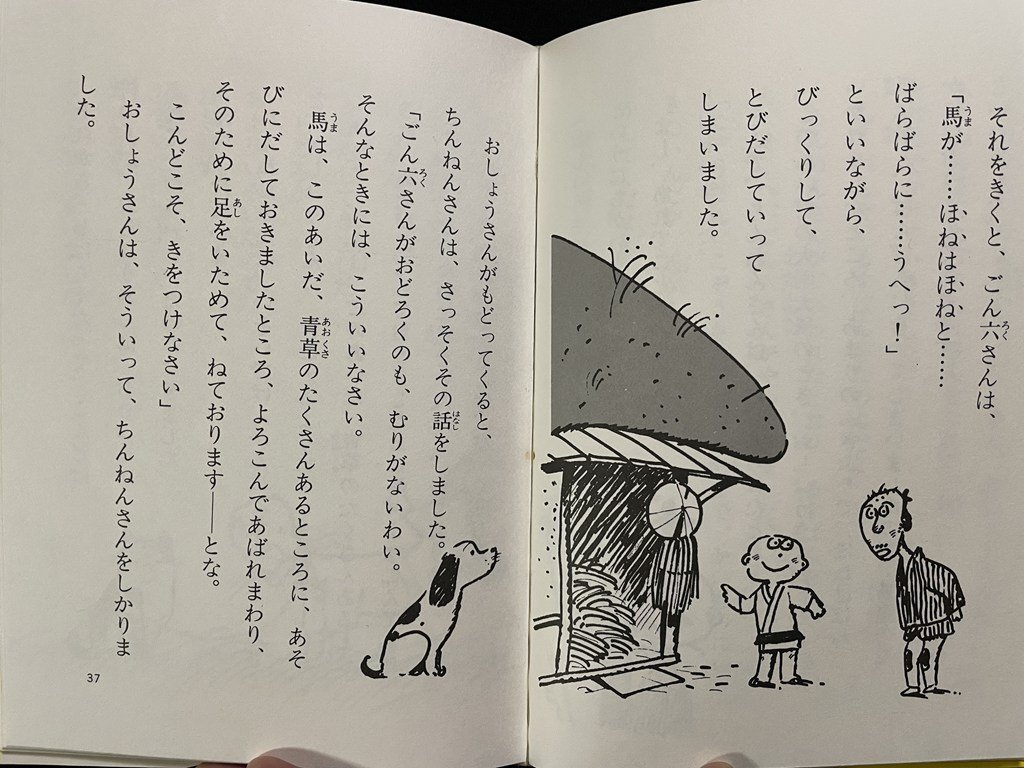 それをきくと、ごん六さんは、
「馬が……ほねはほねと……
ばらばらに……うへっ!」
といいながら、
びっくりして、
とびだしていって
しまいました。
おしょうさんがもどってくると、
ちんねんさんは、さっそくその話をしました。
「ごん六さんがおどろくのも、むりがないわい。
そんなときには、こういいなさい。
馬は、このあいだ、青草のたくさんあるところに、あそ
びにだしておきましたところ、よろこんであばれまわり、
そのために足をいためて、ねております——とな。
こんどこそ、きをつけなさい」
おしょうさんは、そういって、ちんねんさんをしかりま
した。
37